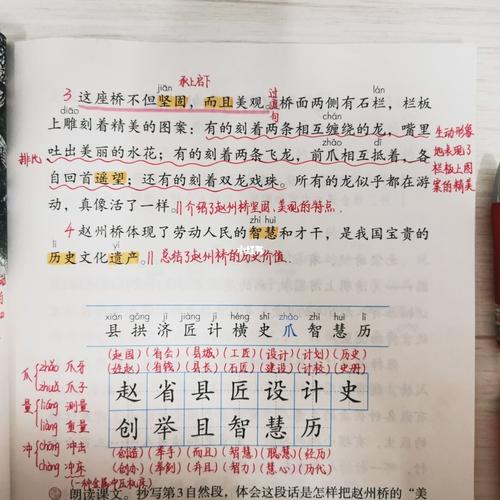 承上启下
3 这座桥不但坚固，而且美观。桥面两侧有石栏，栏板
过渡句
上雕刻着精美的图案：有的刻着两条相互缠绕的龙，嘴里
吐出美丽的水花；有的刻着两条飞龙，前爪相互抵着，各
自回首遥望；还有的刻着双龙戏珠。所有的龙似乎都在游
动，真像活了一样。‖介绍了赵州桥坚固、美观的特点.
排比
生动形象
地表现了
栏板上图
案的精美
4 赵州桥体现了劳动人民的智慧和才干，是我国宝贵的
历史文化遗产。‖总结了赵州桥的历史价值..
小红书
xiàn gǒng jì jiàng jì héng shǐ zhǎo zhì huì lì
县 拱 济 匠 计 横 史 爪 智 慧 历
(赵国)(省会)(县城)(工匠)(设计)(计划)(历史)
(姓赵)(省钱)(县长)(石匠)(建设)(计较)(史册)
赵 省 县 匠 设 计 史
创 举 且 智 慧 历
(创造)(举手)(而且)(智慧)(聪慧)(经历)
(创办)(举例)(并且)(智力)(慧心)(历代)
爪 zhǎo 爪牙
zhuǎ 爪子
量 liáng 测量
liàng 重量
冲 chōng 冲走
chòng 冲床
(一种金属冲压机床)
朗读课文。抄写第3自然段，体会这段话是怎样把赵州桥的“美